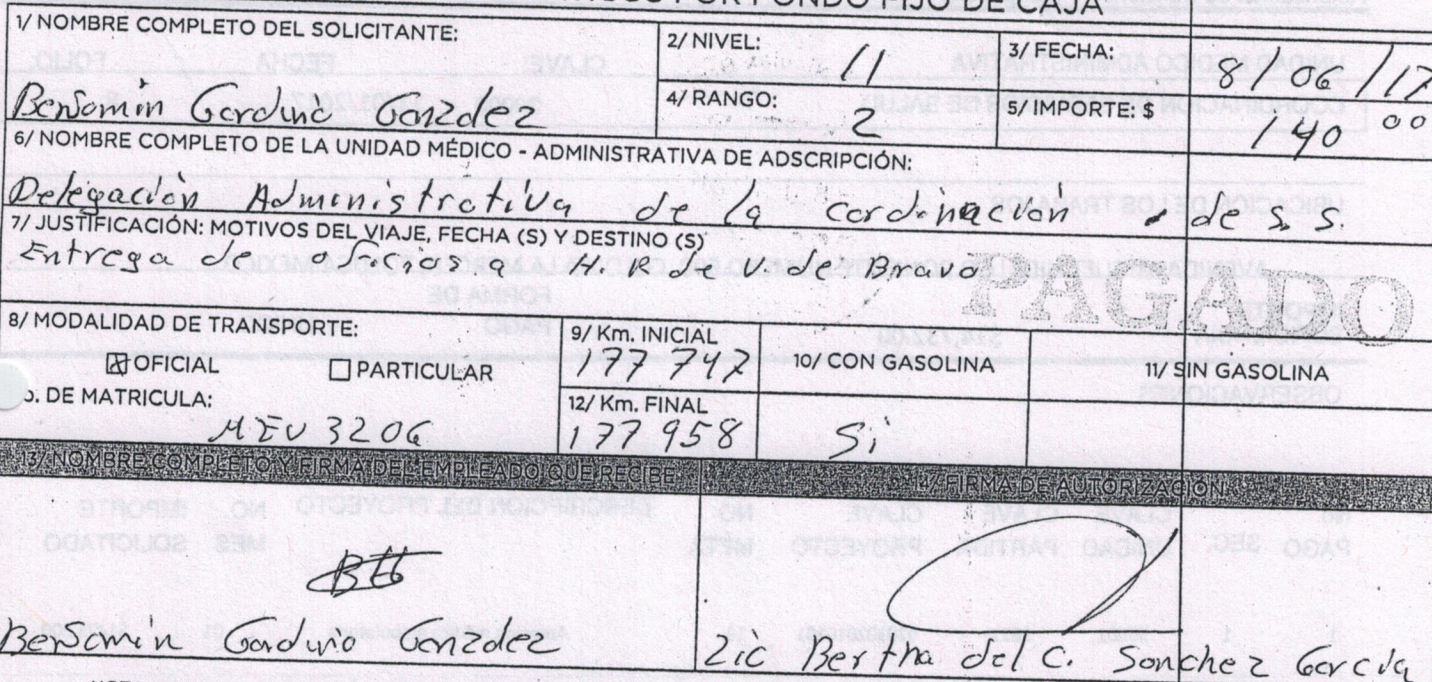 POR FONDO FIJO DE CAJA
1/ NOMBRE COMPLETO DEL SOLICITANTE:
Benjamin Garduño González
2/ NIVEL: 11
3/ FECHA: 8/ 06 /17
4/ RANGO: 2
5/ IMPORTE: $ 140 00
6/ NOMBRE COMPLETO DE LA UNIDAD MÉDICO - ADMINISTRATIVA DE ADSCRIPCIÓN:
Delegación Administrativa de la cordinación de s.s.
7/ JUSTIFICACIÓN: MOTIVOS DEL VIAJE, FECHA (S) Y DESTINO (S)
Entrega de oficios a V. de Bravo
PAGADO
8/ MODALIDAD DE TRANSPORTE:
OFICIAL PARTICULAR
o. DE MATRICULA:
3206
9/ Km. INICIAL
177 747
12/ Km. FINAL
177 958
10/ CON GASOLINA
Si
11/ SIN GASOLINA
13/ NOMBRE COMPLETO Y FIRMA DEL EMPLEADO QUE RECIBE
14/ FIRMA DE AUTORIZACIÓN
Benjamin Garduño González
Lic Bertha del C. Sanchez Garcia